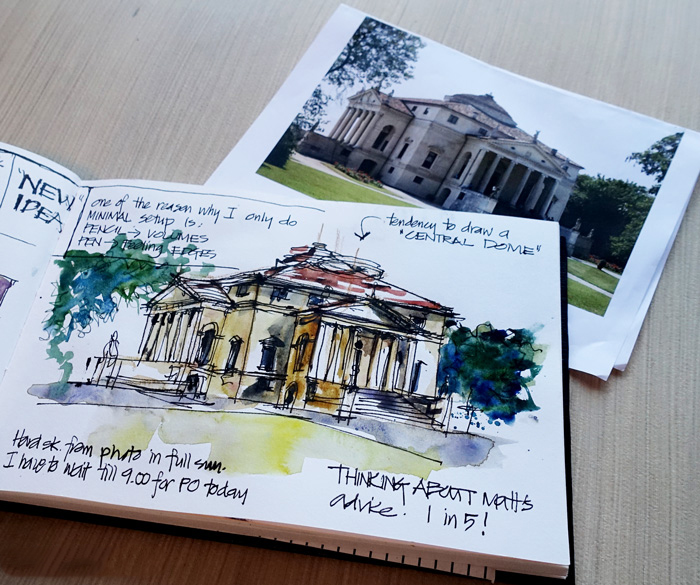 "NEW"
IDEA
one of the reason why I only do
MINIMAL setup is:
PENCIL → VOLUMES
PEN → feeling EDGES
tendency to draw a
"CENTRAL DOME"
from photo in full sun.
I have to wait till 9.00 for PO today
THINKING ABOUT Matt's
advice! 1 in 5!